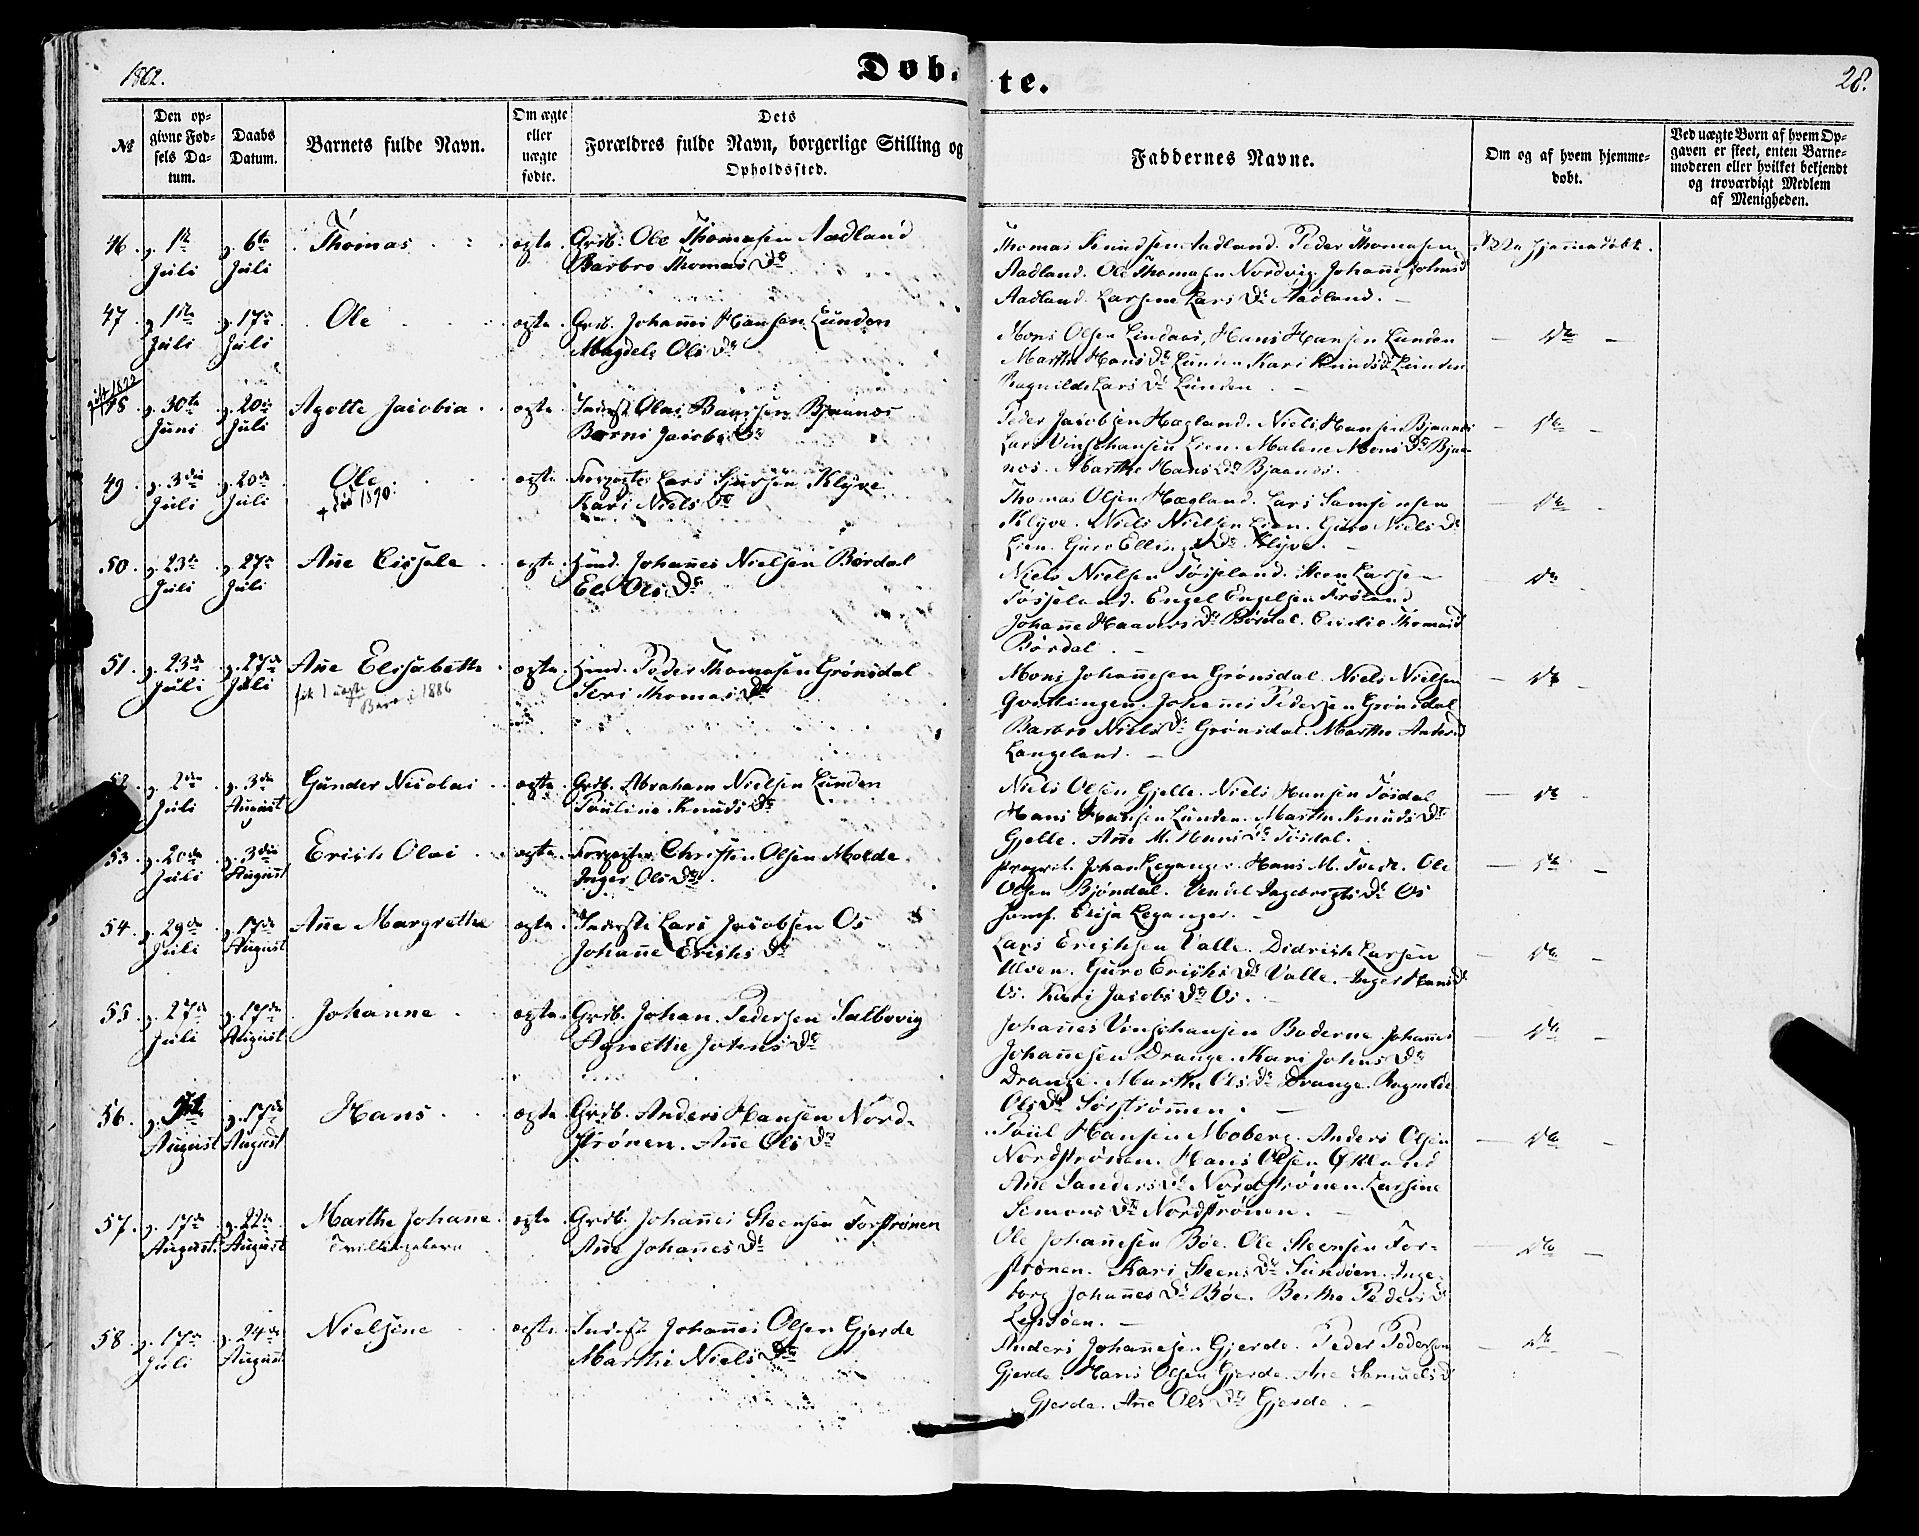 1862.
Døb-
te.
28.
№
Den op-
givne Fød-
sels Da-
tum.
Daabs
Datum.
Barnets fulde Navn.
Om ægte
eller
uægte
fødte.
Dets
Forældres fulde Navn, borgerlige Stilling og
Opholdssted.
Faddernes Navne.
Om og af hvem hjemme-
døbt.
Ved uægte Børn af hvem Op-
gaven er skeet, enten Barne-
moderen eller hvilket bekjendt
og troværdigt Medlem
af Menigheden.
46. d. 1ste Juli d. 6te Juli Thomas ægte Grdb. Ole Thomasen Aadland
Barbro Thomas Dr
Thomas Knudsen Aadland. Peder Thomasen
Aadland. Ole Thomasen Nordvig. Johanne
Aadland. Larsine Lars Dr Aadland.
Ikke hjemmedøbt.
47 d. 1ste Juli d. 17de Juli Ole ægte Grdb. Johannes Hansen Lunden
Magdele Ols Dr
Mons Olsen Lindaas, Hans Hansen Lunden
Marthe Hans Dr Lunden Kari Knuds Dr Lunden
Ragnilde Lars Dr Lunden
Do
48 d. 30te Juni d. 20de Juli Agotte Jacobia ægte Inderst Olai Baarsen Bjaanæs
Berni Jacobs Dr
Peder Jacobsen Hægland. Niels Hansen Bjaanæs
Lars Vinschansen Lien. Malene Mons Dr Bjaa-
næs. Marthe Hans Dr Bjaanæs.
Do
49 d. 3die Juli d. 20de Juli Ole ægte Forpagter Lars Sjursen Klyve
+ 1890.
Kari Niels Dr
Thomas Olsen Hægland. Lars Samsonsen
Klyve. Niels Nielsen Lien. Guro Niels Dr
Lien. Guro Ellings Dr Klyve.
Do
50 d. 23de Juli d. 27de Juli Ane Cissele ægte Huusm. Johannes Nielsen Børdal
Eli Ols Dr
Niels Nielsen Tøsseland. Steen Larsen
Tøsseland. Engel Engelsen Frøland
Johanne Haavers Dr Børdal. Cecilie Thomas Dr
Børdal.
Do
51 d. 23de Juli d. 27de Juli Ane Elisabeth ægte Huusm. Peder Thomasen Grønsdal
fik 1 uægte
Barn i 1886
Seri Thomas Dr
Mons Johannesen Grønsdal. Niels Nielsen
Gvittingen. Johannes Pedersen Grønsdal
Barbro Niels Dr Grønsdal. Marthe Anders Dr
Langeland.
Do
52 d. 2den Juli d. 3die August Gunder Nicolai ægte Grdb. Abraham Nielsen Lunden
Pauline Knuds Dr
Niels Olsen Gjelle. Niels Hansen Tøsdal
Hans Hansen Lunden. Marthe Knuds Dr
Gjelle. Ane M. Hans Dr Tøsdal.
Do
53 d. 20de Juli d. 3die August Erich Olai ægte Forpagter Christen Olsen Molde
Inger Ols Dr
Propriet. Johan Leganger. Hans M. Tvedt. Ole
Olsen Bjøndal. Ingebrigts Dr Os
Jomf. Elisa Leganger.
Do
54. d. 29de Juli d. 17de August Ane Margrethe ægte Inderste Lars Jacobsen Os
Johanne Erichs Dr
Lars Erichsen Valle. Didrich Larsen
Ulven. Guro Erichs Dr Valle. Inger Hans Dr
Os. Kari Jacobs Dr Os.
Do
55 d. 27de Juli d. 17de August Johanne ægte Grdb. Johan Pedersen Salbovig
Agnethe Johns Dr
Johannes Vinschansen Baderne. Johannes
Johannesen Drange. Kari Johns Dr
Drange. Marthe Ols Dr Drange. Ragnilde
Ols Dr Sørstrømmen.
Do
56. August d. 17de August Hans ægte Grdb. Anders Hansen Nord-
strønen. Ane Ols Dr
Paul Hansen Moberg. Anders Olsen
Nordstrønen. Hans Olsen Økland
Ane Sanders Dr Nordstrønen. Larsine
Simons Dr Nordstrønen.
Do
57. d. 17de August d. 22de August Marthe Johane ægte Grdb. Johannes Steensen Forstrønen
Tvillingebarn
Ane Johannes Dr
Ole Johannesen Bøe. Ole Steensen For-
strønen. Kari Steens Dr Sundøen. Inge-
borg Johannes Dr Bøe. Berthe Peders Dr
Lepsøen.
Do
58. d. 17de Juli d. 24de August Nielsine ægte Inderst Johannes Olsen Gjerde
Marthe Niels Dr
Anders Johannesen Gjerde. Peder Pedersen
Gjerde. Hans Olsen Gjerde. Ane Samuels Dr
Gjerde. Ane Ols Dr Gjerde.
Do